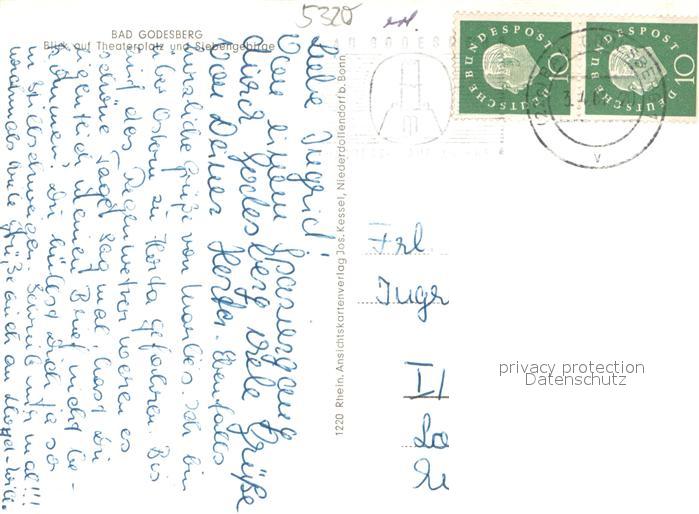 5320
BAD GODESBERG
Blick auf Theaterplatz und Siebengebirge
Liebe Ingrid!
Von einem Spaziergang
durch Godesberg viele Grüße
von Deiner Herta. Ebenfalls
herzliche Grüße von Marlies. Ich bin
über Ostern zu Herta gefahren. Bis
auf das Regenwetter waren es
schöne Tage. Sag mal, hast Du
eigentlich meinen Brief nicht be-
kommen, Du hüllst Dich ja so
in Stillschweigen. Schreib mir mal!!!
nochmals viele Grüße auch an
1220 Rhein. Ansichtskartenverlag Jos. Kessel, Niederdollendorf b. Bonn
BAD GODESBERG
DEUTSCHE BUNDESPOST
10
DEUTSCHE BUNDESPOST
10
Frl.
Ingr
privacy protection
Datenschutz